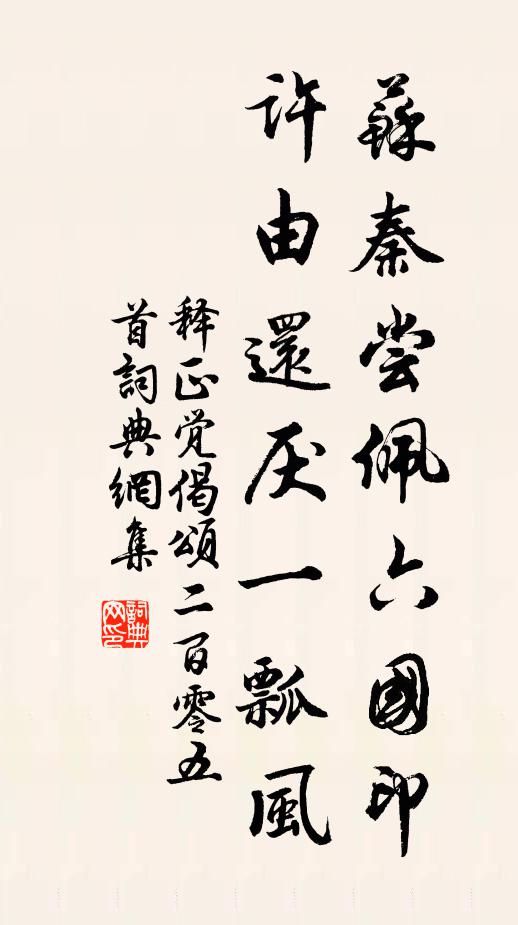 蘇秦尝佩六國印
許由還厌一瓢風
释正觉偈頌二百零五
首詞典網集
詞典网印